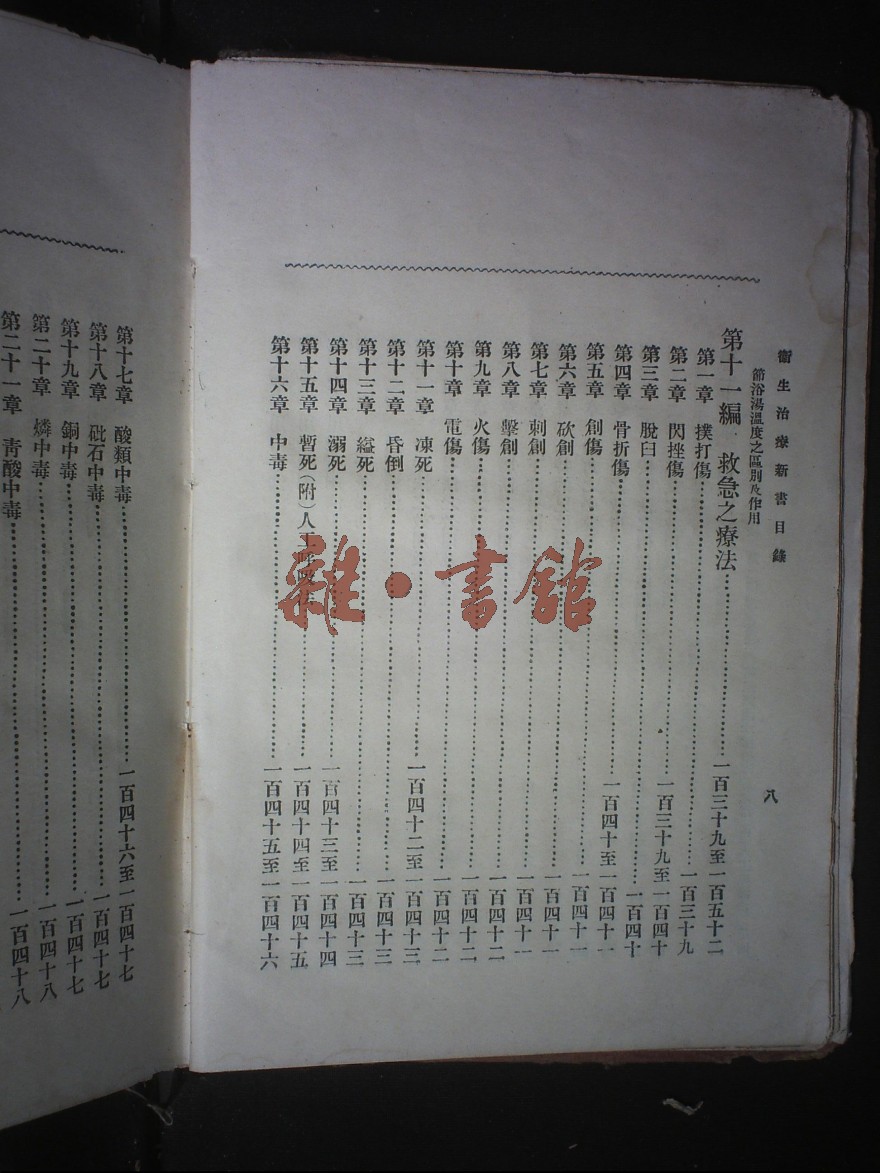 衞生治療新書目錄
八
節浴湯溫度之區別及作用
第十一編 救急之療法 一百三十九至一百五十二
第一章 撲打傷 一百三十九
第二章 閃挫傷 一百三十九至一百四十
第三章 脫臼 一百四十
第四章 骨折傷 一百四十至一百四十一
第五章 創傷 一百四十一
第六章 砍創 一百四十一
第七章 刺創 一百四十一
第八章 擊創 一百四十一
第九章 火傷 一百四十二
第十章 電傷 一百四十二
第十一章 凍死 一百四十二至一百四十三
第十二章 昏倒 一百四十三
第十三章 縊死 一百四十三
第十四章 溺死 一百四十三至一百四十四
第十五章 暫死(附)人工呼吸 一百四十四至一百四十五
第十六章 中毒 一百四十五至一百四十六
第十七章 酸類中毒 一百四十六至一百四十七
第十八章 砒石中毒 一百四十七
第十九章 銅中毒 一百四十七
第二十章 燐中毒 一百四十八
第二十一章 靑酸中毒 一百四十八
雜·書館